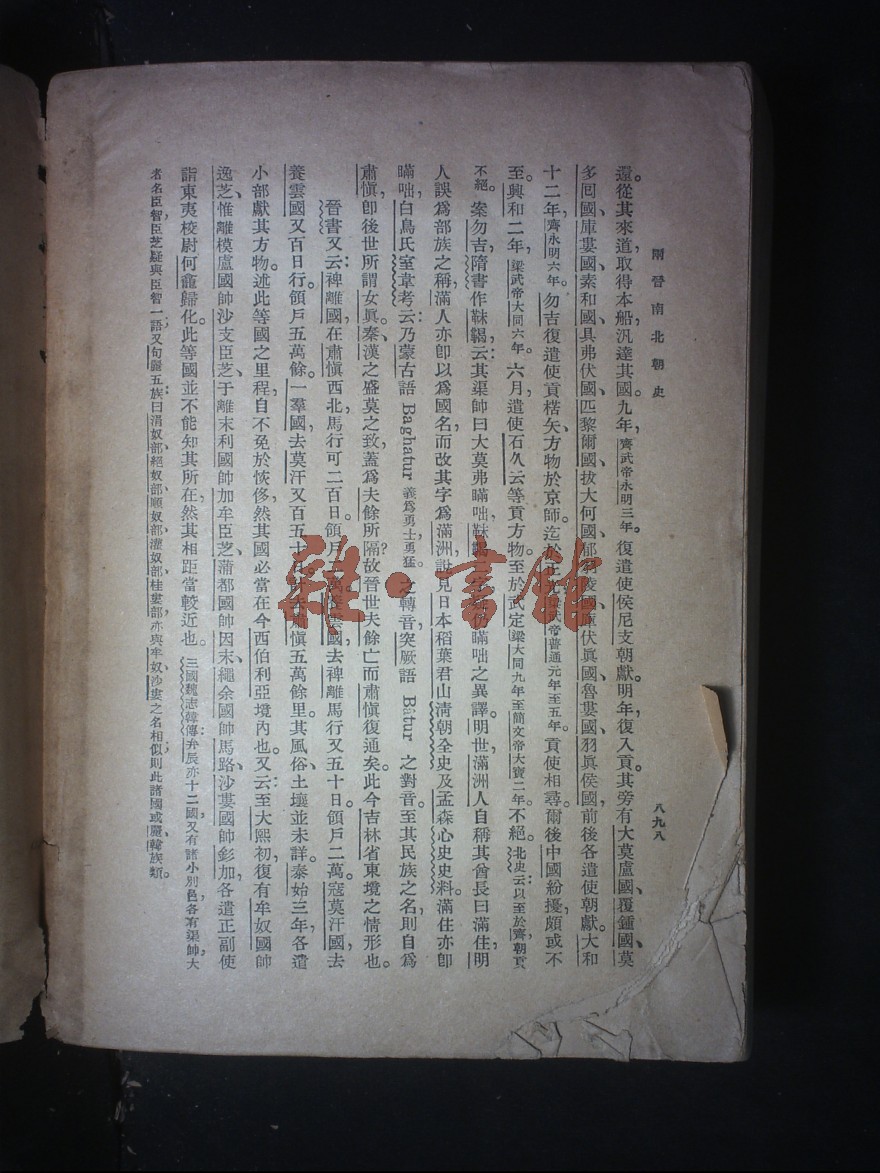 兩晉南北朝史
八九八
還。從其來道，取得本船，汎達其國。九年，齊武帝永明三年。復遣使侯尼支朝獻。明年，復入貢。其旁有大莫盧國、覆鍾國、莫
多回國、庫婁國、素和國、具弗伏國、匹黎爾國、拔大何國、郁國、伏眞國、魯婁國、羽眞侯國，前後各遣使朝獻。大和
十二年，齊永明六年。勿吉復遣使貢楛矢、方物於京師。迄於正光，武帝普通元年至五年。貢使相尋。爾後中國紛擾，頗或不
至。興和二年，梁武帝大同六年。六月，遣使石久云等貢方物。至於武定，梁大同九年至簡文帝大寶二年。不絕。北史云：以至於齊，朝貢
不絕。案勿吉，隋書作靺鞨，云：其渠帥曰大莫弗瞞咄，靺鞨瞞咄之異譯。明世，滿洲人自稱其酋長曰滿住，明
人誤爲部族之稱，滿人亦卽以爲國名，而改其字爲滿洲，說見日本稻葉君山清朝全史及孟森心史史料。滿住亦卽
瞞咄，白鳥氏室韋考云：乃蒙古語 Baghatur 義爲勇士勇猛。之轉音，突厥語 Bātur 之對音。至其民族之名，則自爲
肅愼，卽後世所謂女眞。秦、漢之盛莫之致，蓋爲夫餘所隔？故晉世夫餘亡而肅愼復通矣。此今吉林省東境之情形也。
晉書又云：裨離國，在肅愼西北，馬行可二百日。領戶二萬。養雲國，去裨離馬行又五十日。領戶二萬。寇莫汗國，去
養雲國又百日行。領戶五萬餘。一羣國，去莫汗又百五十日。計去肅愼五萬餘里。其風俗、土壤並未詳。泰始三年，各遣
小部獻其方物。述此等國之里程，自不免於恢侈，然其國必當在今西伯利亞境內也。又云：至大熙初，復有牟奴國帥
逸芝、惟離模盧國帥沙支臣芝、于離末利國帥加牟臣芝、蒲都國帥因末、繩余國帥馬路、沙婁國帥釤加，各遣正副使
詣東夷校尉何龕歸化。此等國並不能知其所在，然其相距當較近也。三國魏志韓傳：弁辰亦十二國，又有諸小別邑，各有渠帥，大
者名臣智，臣芝疑與臣智一語；又句麗五族，曰涓奴部、絕奴部、順奴部、灌奴部、桂婁部，亦與牟奴、沙婁之名相似；則此諸國或麗、韓族類。
雜·書館